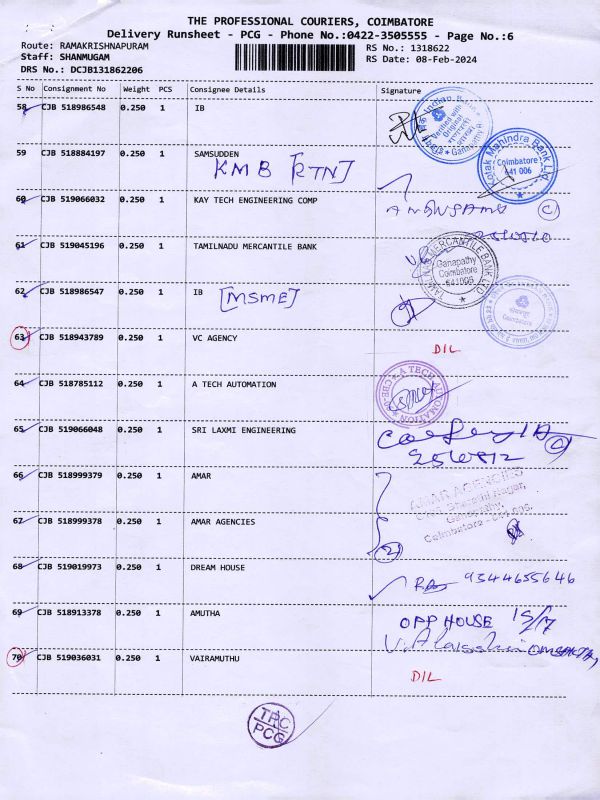 THE PROFESSIONAL COURIERS, COIMBATORE
Delivery Runsheet - PCG - Phone No.:0422-3505555 - Page No.:6
Route: RAMAKRISHNAPURAM
RS No.: 1318622
Staff: SHANMUGAM
RS Date: 08-Feb-2024
DRS No.: DCJB131862206
S No Consignment No Weight PCS Consignee Details Signature
58 CJB 518986548 0.250 1 IB
59 CJB 518884197 0.250 1 SAMSUDDEN
KMB [RTN]
Kotak Mahindra Bank Ltd
Coimbatore
641 006
60 CJB 519066032 0.250 1 KAY TECH ENGINEERING COMP
61 CJB 519045196 0.250 1 TAMILNADU MERCANTILE BANK
TAMILNAD MERCANTILE BANK LTD
Ganapathy
Coimbatore
641006
62 CJB 518986547 0.250 1 IB [MSME]
63 CJB 518943789 0.250 1 VC AGENCY
DIL
64 CJB 518785112 0.250 1 A TECH AUTOMATION
A TECH AUTOMATION
65 CJB 519066048 0.250 1 SRI LAXMI ENGINEERING
66 CJB 518999379 0.250 1 AMAR
AMAR AGENCIES
Ganapathy,
Coimbatore - 641 006.
67 CJB 518999378 0.250 1 AMAR AGENCIES
(2)
68 CJB 519019973 0.250 1 DREAM HOUSE
9344655646
69 CJB 518913378 0.250 1 AMUTHA
OPP HOUSE 15/17
70 CJB 519036031 0.250 1 VAIRAMUTHU
DIL
TPC
PCG